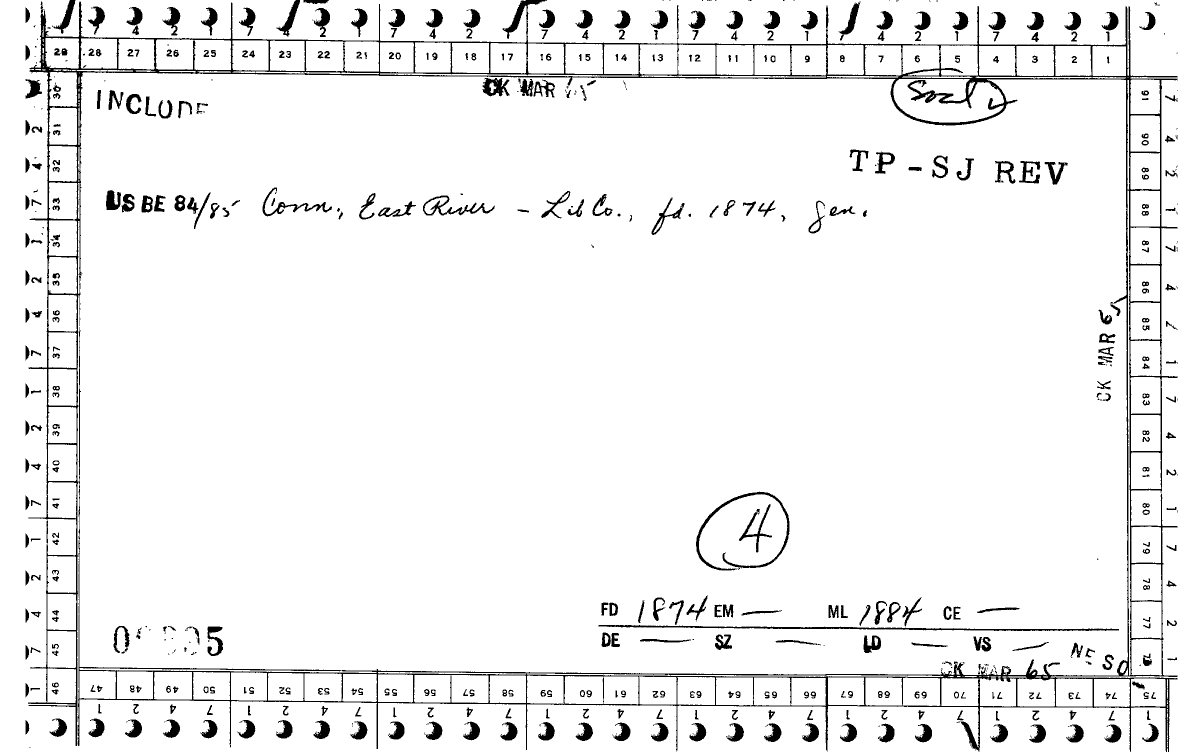 7 4 2 1 7 4 2 1 7 4 2 1 7 4 2 1 7 4 2 1 7 4 2 1 7 4 2 1
29 28 27 26 25 24 23 22 21 20 19 18 17 16 15 14 13 12 11 10 9 8 7 6 5 4 3 2 1
CK MAR 65
INCLUDE
TP-SJ REV
US BE 84/85 Conn., East River - Lib Co., fd. 1874, gen.
CK MAR 65
4
FD 1874 EM — ML 1884 CE —
DE — SZ — LD — VS —
NE SO
CK MAR 65
30 31 32 33 34 35 36 37 38 39 40 41 42 43 44 45 46
91 90 89 88 87 86 85 84 83 82 81 80 79 78 77 76
47 48 49 50 51 52 53 54 55 56 57 58 59 60 61 62 63 64 65 66 67 68 69 70 71 72 73 74 75
1 2 4 7 1 2 4 7 1 2 4 7 1 2 4 7 1 2 4 7 1 2 4 7 1 2 4 7 1